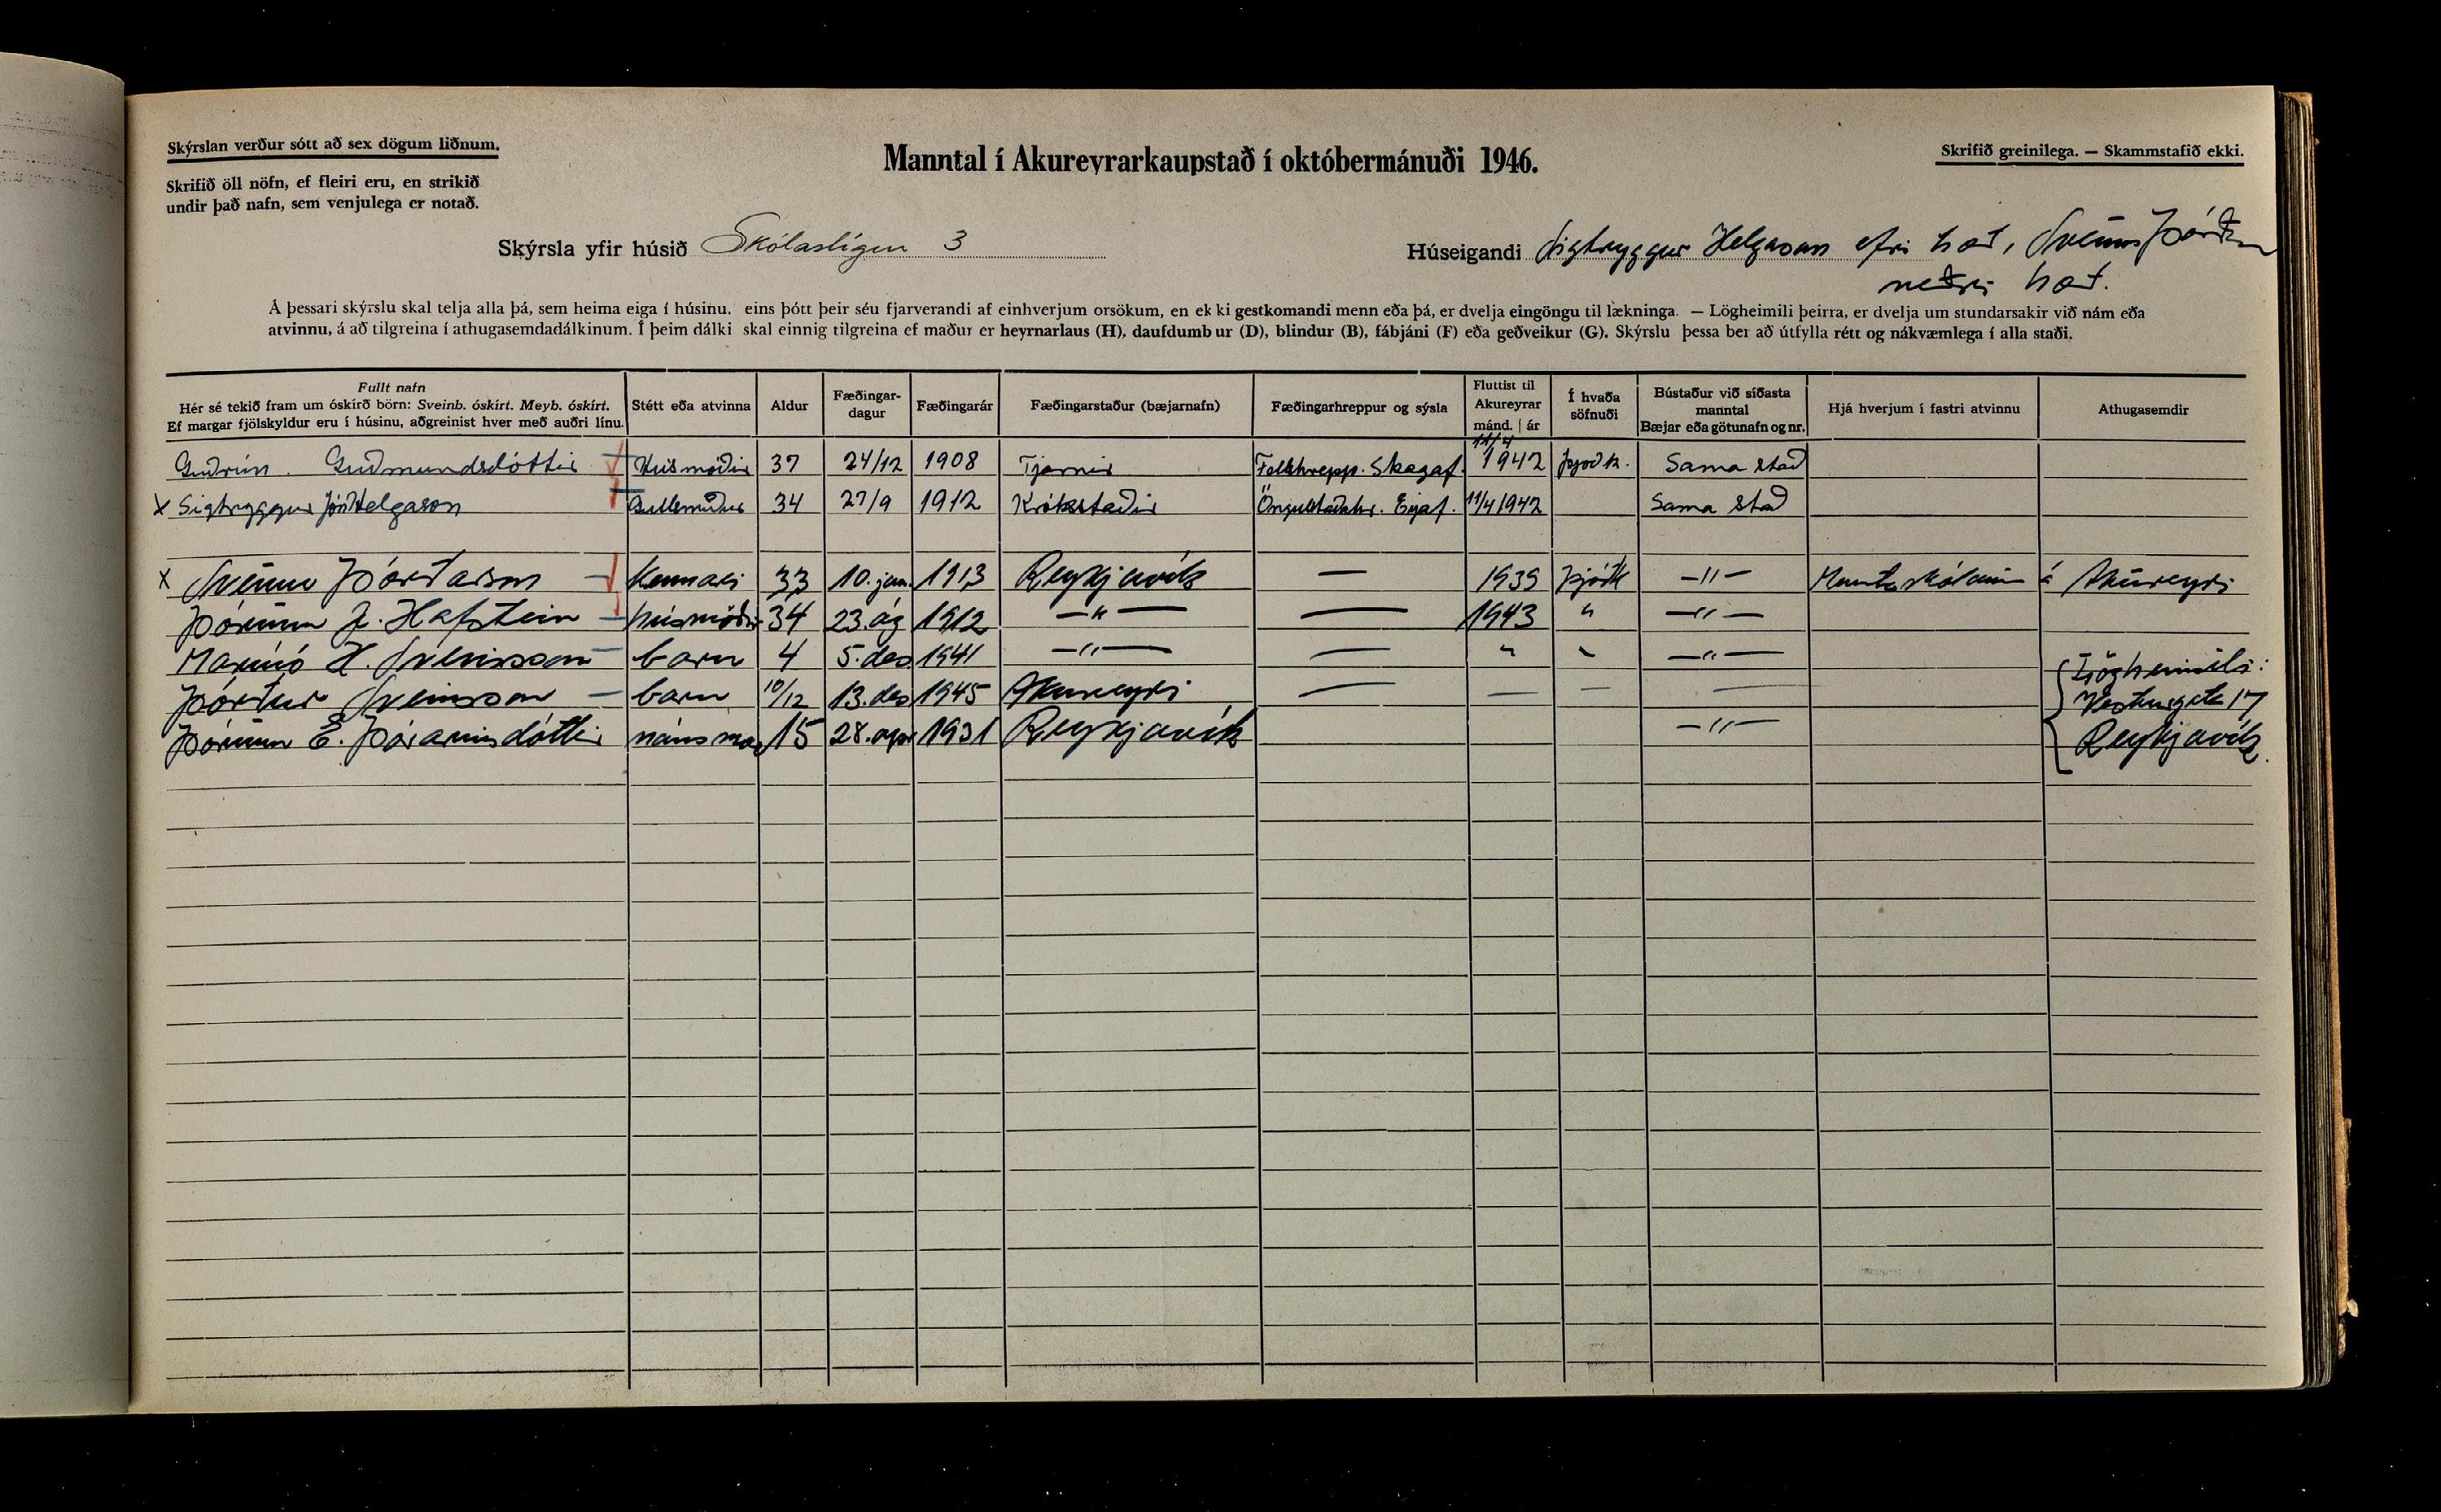 Skýrslan verður sótt að sex dögum liðnum.
Skrifið öll nöfn, ef fleiri eru, en strikið
undir það nafn, sem venjulega er notað.
Manntal í Akureyrarkaupstað í októbermánuði 1946.
Skrifið greinilega. — Skammstafið ekki.
Skýrsla yfir húsið Skólastígur 3
Húseigandi Sigtryggur Helgason efri hæð, Sveinn Þórðarson
neðri hæð.
Á þessari skýrslu skal telja alla þá, sem heima eiga í húsinu, eins þótt þeir séu fjarverandi af einhverjum orsökum, en ekki gestkomandi menn eða þá, er dvelja eingöngu til lækninga. — Lögheimili þeirra, er dvelja um stundarsakir við nám eða
atvinnu, á að tilgreina í athugasemdadálkinum. Í þeim dálki skal einnig tilgreina ef maður er heyrnarlaus (H), daufdumbur (D), blindur (B), fábjáni (F) eða geðveikur (G). Skýrslu þessa ber að útfylla rétt og nákvæmlega í alla staði.
Fullt nafn
Hér sé tekið fram um óskírð börn: Sveinb. óskírt. Meyb. óskírt.
Ef margar fjölskyldur eru í húsinu, aðgreinist hver með auðri línu.
Stétt eða atvinna
Aldur
Fæðingar-
dagur
Fæðingarár
Fæðingarstaður (bæjarnafn)
Fæðingarhreppur og sýsla
Fluttist til
Akureyrar
mánd. | ár
Í hvaða
söfnuði
Bústaður við síðasta
manntal
Bæjar eða götunafn og nr.
Hjá hverjum í fastri atvinnu
Athugasemdir
Guðrún Guðmundsdóttir Húsmóðir 37 24/12 1908 Tjarnir Fellshrepp. Skagaf. 11/4 1942 þjóðk. Sama stað
x Sigtryggur Jón Helgason Gullsmiður 34 27/9 1912 Krókstaðir Öngulstaðahr. Eyjaf. 11/4 1942 Sama stað
x Sveinn Þórðarson kennari 33 10. jan. 1913 Reykjavík — 1939 þjóðk —〃— Menntaskólanum á Akureyri
Þórunn J. Hafstein húsmóðir 34 23. ág 1912 —〃— — 1943 〃 —〃—
Marinó H. Sveinsson barn 4 5. des 1941 —〃— — 〃 〃 —〃—
Þórður Sveinsson barn 10/12 13. des 1945 Akureyri — — — —
Þórunn E. Þórarinsdóttir námsmær 15 28. apr 1931 Reykjavík —〃—
Lögheimili:
Vesturgata 17
Reykjavík.